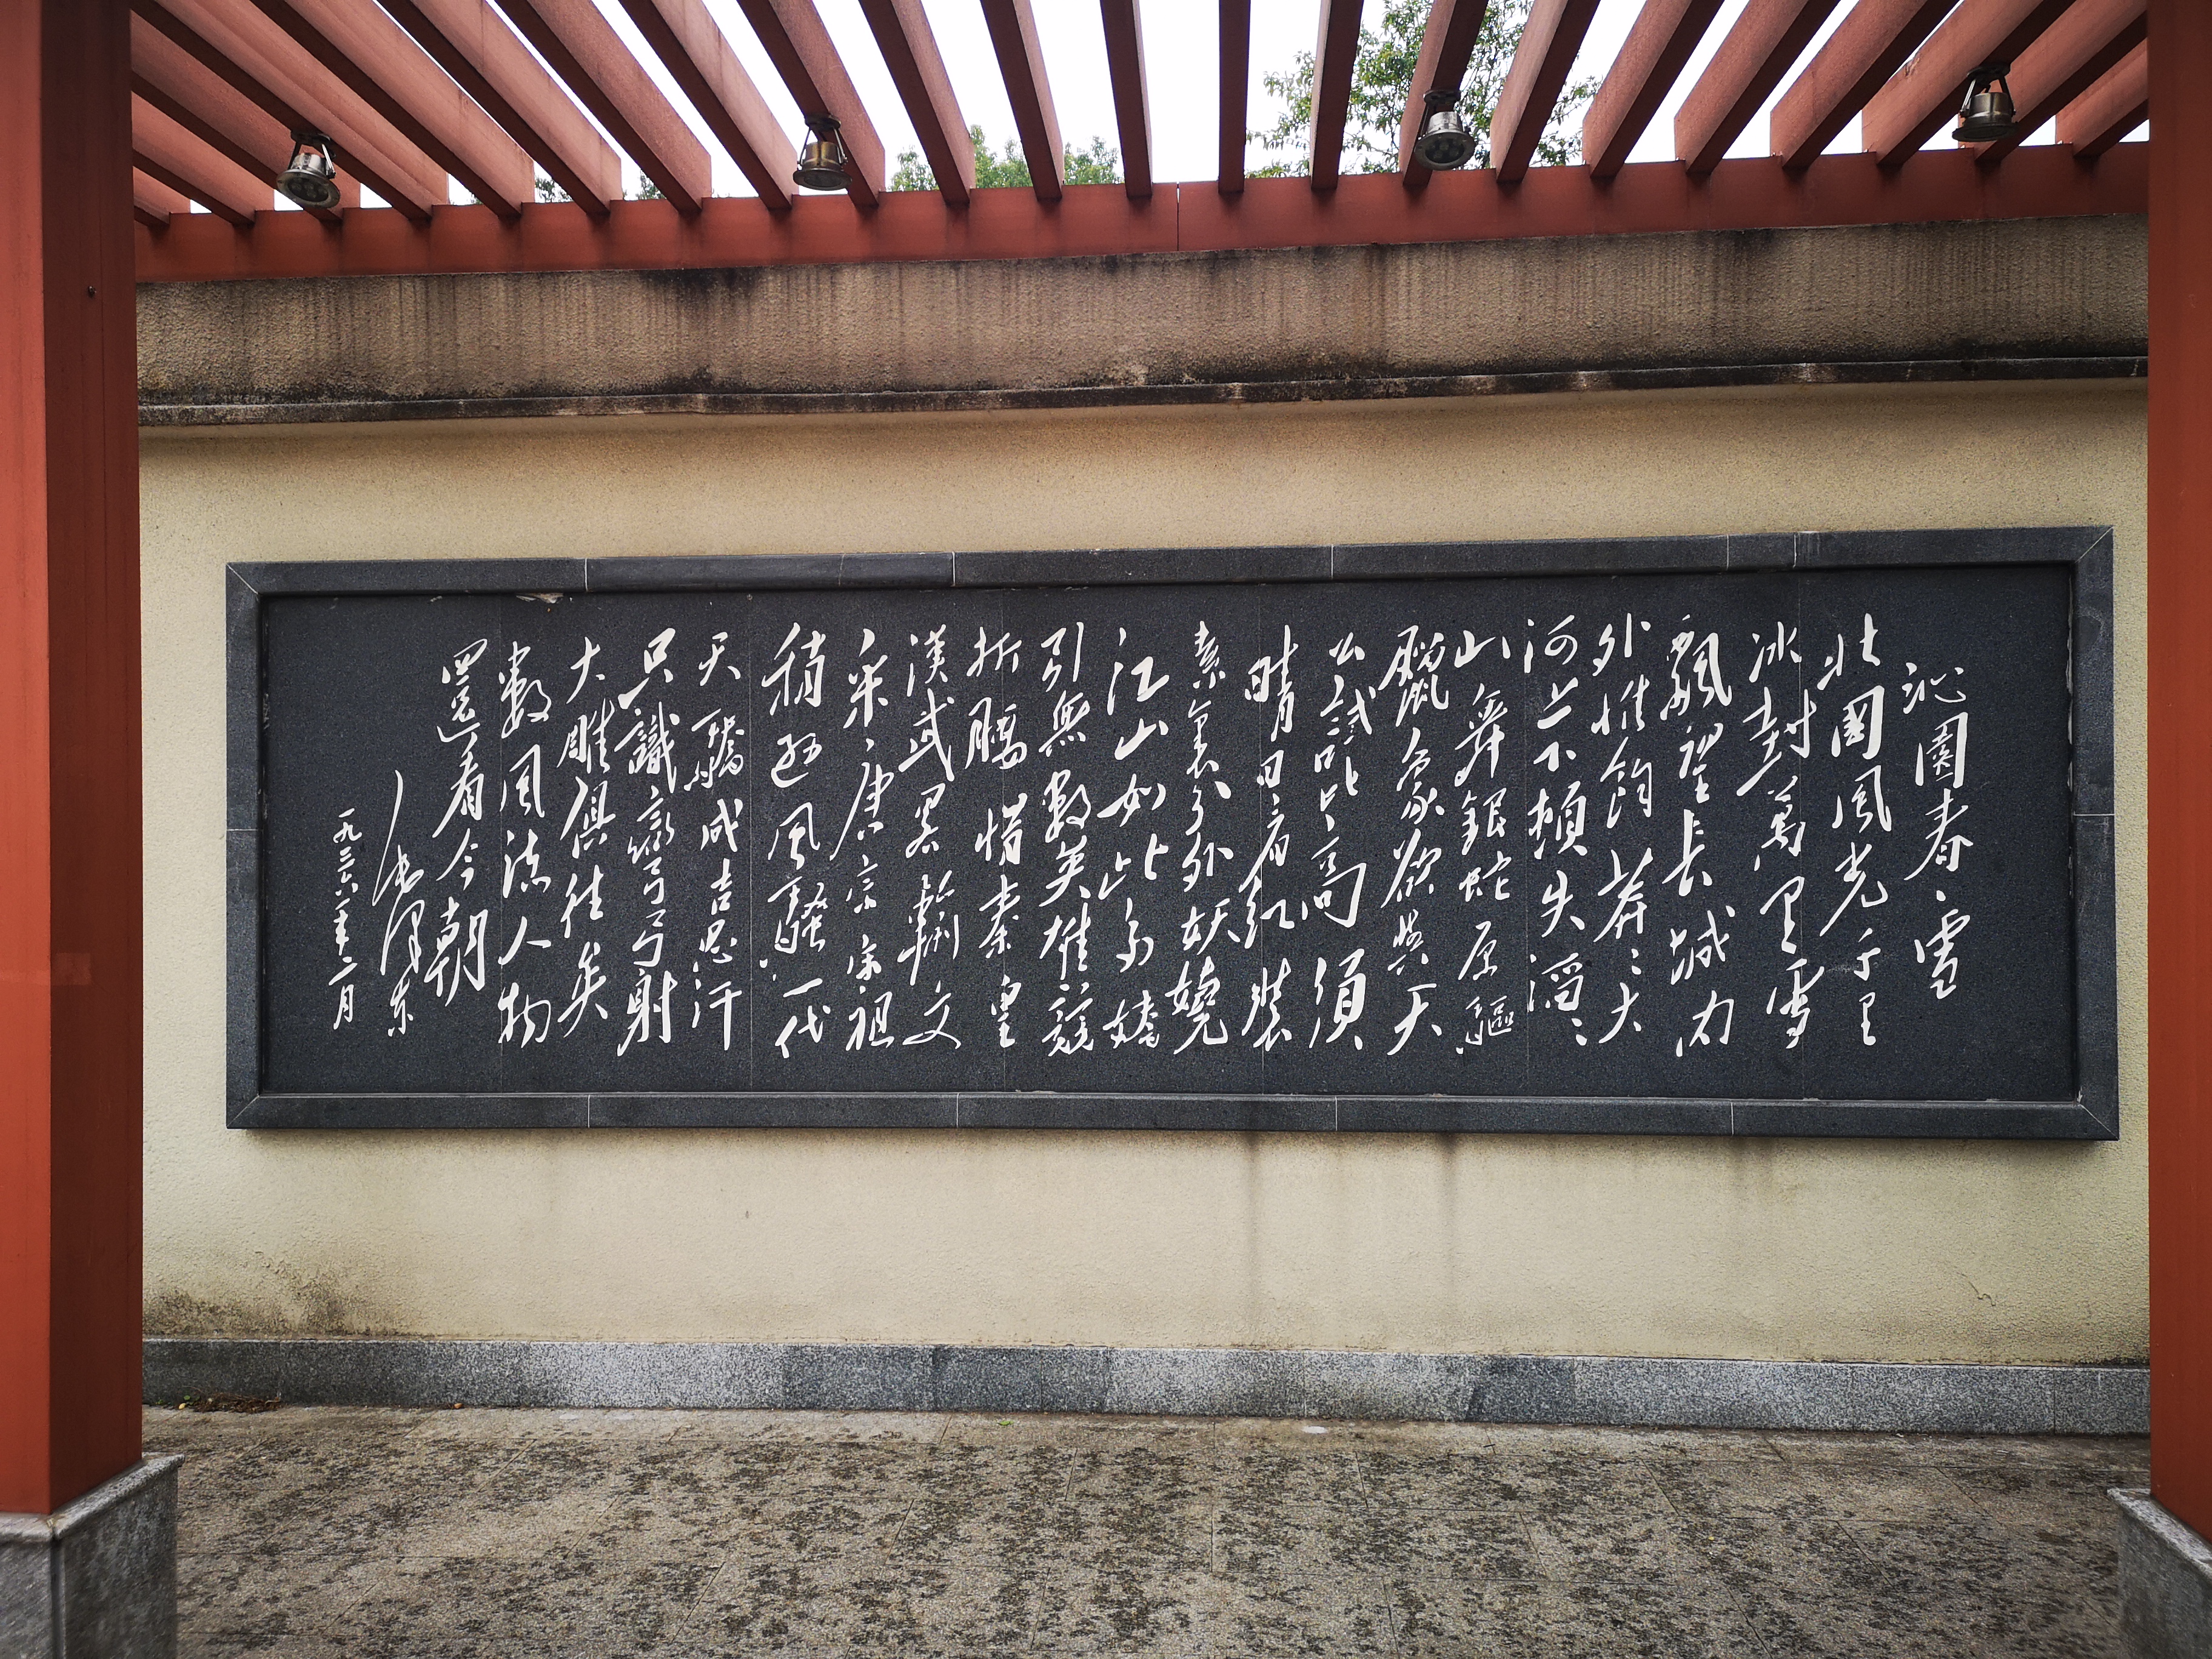 沁園春、雪
北國風光千里
冰封萬里雪
飄望長城內
外惟餘莽々大
河上下頓失滔々
山舞銀蛇原驅
臘象欲與天
公試比高須
晴日看紅裝
素裹分外妖嬈
江山如此多嬌
引無數英雄競
折腰惜秦皇
漢武略輸文
采唐宗宋祖
稍遜風騷一代
天驕成吉思汗
只識彎弓射
大雕俱往矣
數風流人物
還看今朝
毛澤东
一九三六年二月